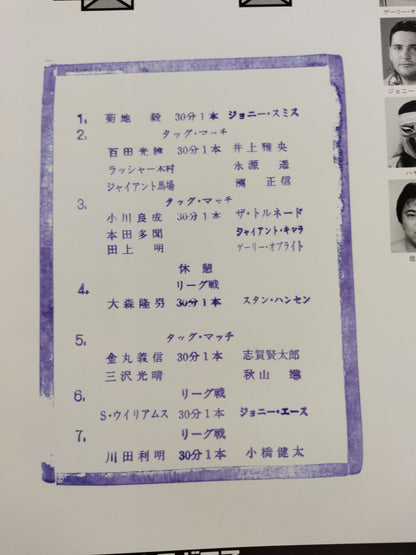 1. 菊地 毅 30分1本 ジョニー・スミス
2. タッグ・マッチ
百田光雄 30分1本 井上雅央
ラッシャー木村 永源 遙
ジャイアント馬場 渕 正信
3. タッグ・マッチ
小川良成 30分1本 ザ・トルネード
本田多聞 ジャイアント・キマラ
田上 明 ゲーリー・オブライト
休憩
リーグ戦
4. 大森隆男 30分1本 スタン・ハンセン
5. タッグ・マッチ
金丸義信 30分1本 志賀賢太郎
三沢光晴 秋山 準
6. リーグ戦
S・ウイリアムス 30分1本 ジョニー・エース
7. リーグ戦
川田利明 30分1本 小橋健太
ゲーリー・オ
ジョニー
ハヤ
佐